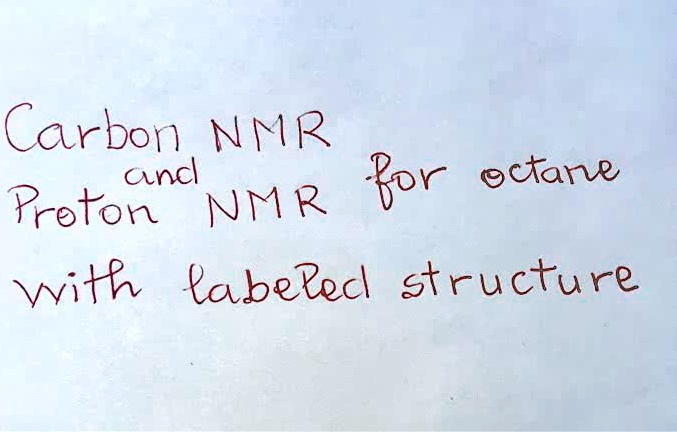 Carbon NMR
and
Proton NMR for octane
with labeled structure